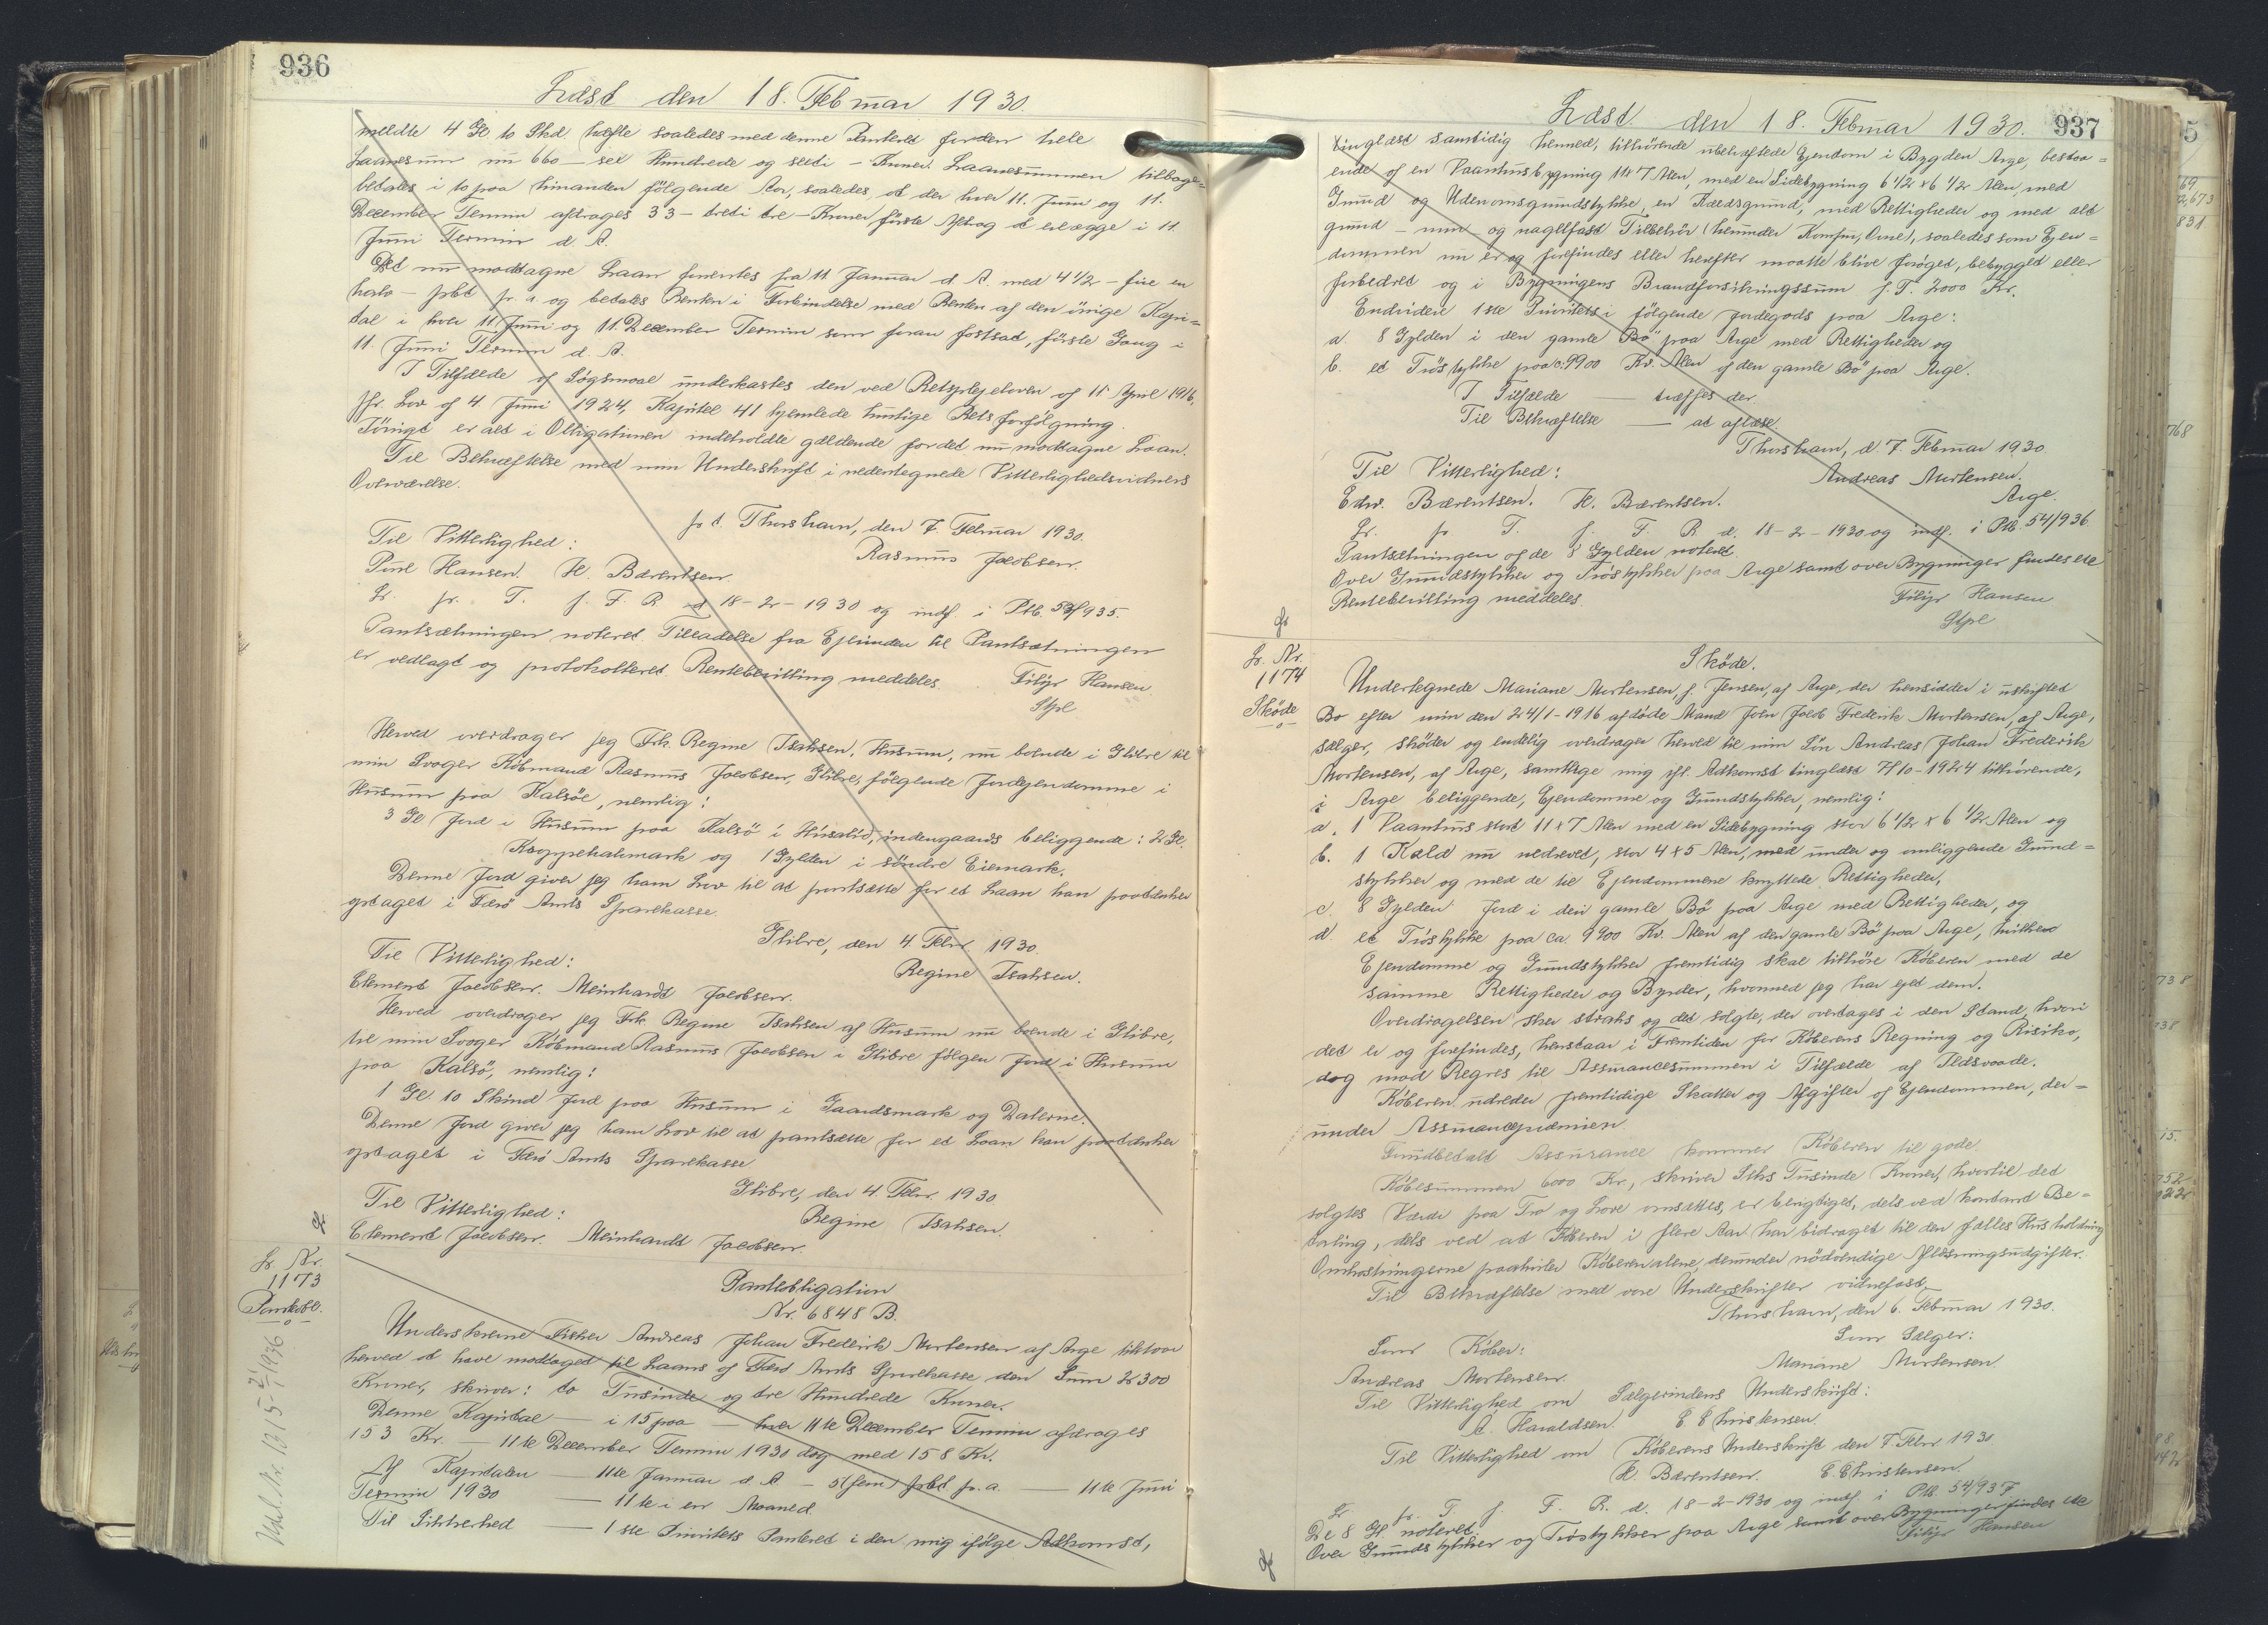 936
Læst den 18. Februar 1930.
meldte 4 Gl 10 Skd. hæfte saaledes med denne Panteret for den hele
Laanesum nu 660 - sex Hundrede og sexti - Kroner. Laanesummen tilbage=
betales i 10 paa hinanden følgende Aar, saaledes, at der hver 11. Juni og 11.
December Termin afdrages 33 - treti tre - Kroner første Afdrag at erlægge i 11.
Juni Termin d. A.
Det nu modtagne Laan forrentes fra 11 Januar d. A. med 4 1/2 - fire en
halv - pCt pr. a og betales Renten i Forbindelse med Renten af den øvrige Kapi=
tal i hver 11. Juni og 11. December Termin som foran fastsat, første Gang i
11. Juni Termin d. A.
I Tilfælde af Søgsmaal underkastes den ved Retsplejeloven af 11 April 1916,
jfr. Lov af 4 Juni 1924, Kapitel 41 hjemlede hurtige Retsforfølgning.
Iøvrigt er alt i Obligationen indeholdte gældende for det nu modtagne Laan.
Til Bekræftelse med min Underskrift i nedentegnede Vitterlighedsvidners
Overværelse.
p. t. Thorshavn, den 7. Februar 1930.
Til Vitterlighed: Rasmus Jacobsen.
Poul Hansen. H. Bærentsen.
Lr. pr. T. f. F. R. d 18-2-1930 og indf. i Ptb. 54/935.
Pantsætningen noteret. Tilladelse fra Ejerinden til Pantsætningen
er vedlagt og protokolleret. Rentebevilling meddeles. Filip Hansen.
Stpl
Herved overdrager jeg Frk. Regine Isaksen, Husum, nu boende i Glibre til
min Svoger Købmand Rasmus Jacobsen, Glibre, følgende Jordejendomme i
Husum paa Kalsöe, nemlig:
3 Gl. Jord i Husum paa Kalsö i Húsalid, indengaards beliggende: 2 Gl.
Koppehahmark og 1 Gylden i søndre Eiemark.
Denne Jord giver jeg ham Lov til at pantsætte for et Laan han paatænker
optaget i Færö Amts Sparekasse.
Glibre, den 4. Febr. 1930.
Til Vitterlighed: Regine Isaksen.
Clement Jacobsen. Meinhardt Jacobsen.
Herved overdrager jeg Frk. Regine Isaksen af Husum nu boende i Glibre,
til min Svoger Købmand Rasmus Jacobsen i Glibre følgen Jord i Husum
paa Kalsö, nemlig:
1 Gl. 10 Skind Jord paa Husum i Gaardsmark og Dalerne.
Denne Jord giver jeg ham Lov til at pantsætte for et Laan han paatænker
optaget i Færö Amts Sparekasse
Glibre, den 4. Febr. 1930
Til Vitterlighed: Regine Isaksen.
Clement Jacobsen. Meinhardt Jacobsen.
Lr. Nr.
1173
Pantobl.
Udsl. Nr. 1315 - 21/1 1936
Panteobligation
Nr. 6848 B.
Underskrevne Fisker Andreas Johan Frederik Mortensen af Arge tilstaar
herved at have modtaget til Laans af Færö Amts Sparekasse den Sum 2300
Kroner, skriver: to Tusinde og tre Hundrede Kroner.
Denne Kapital — i 15 paa — hver 11te December Termin afdrages
153 Kr. — 11te December Termin 1930 dog med 158 Kr.
Af Kapitalen — 11te Januar d. A - 5 (fem) pCt pr. a. — 11te Juni
Termin 1930 — 11te i en Maaned
Til Sikkerhed — 1ste Prioritets Panteret i den mig ifølge Adkomst,
937
Læst den 18. Februar 1930.
tinglæst samtidig hermed, tilhørende ubehæftede Ejendom i Bygden Arge, bestaa=
ende af en Vaanhusbygning 11 x 7 Alen, med en Sidebygning 6 1/2 x 6 1/2 Alen, med
Grund og Udenomsgrundstykke, en Kældsgrund, med Rettigheder og med alt
grund - mur - og nagelfast Tilbehør (herunder Komfur, Ovne), saaledes som Ejen=
dommen nu er og forefindes eller herefter maatte blive forøget, bebygget eller
forbedret og i Bygningens Brandforsikringssum f. T. 2000 Kr.
Endvidere 1ste Prioritets i følgende Jordegods paa Arge:
a. 8 Gylden i den gamle Bø paa Arge med Rettigheder og
b. et Trøstykke paa c: 9900 Kv. Alen af den gamle Bø paa Arge.
I Tilfælde — træffes der
Til Bekræftelse — at aflæse
Thorshavn, d. 7. Februar 1930.
Til Vitterlighed: Andreas Mortensen.
Edw. Bærentsen. H. Bærentsen. Arge.
Lr. pr T. f. F. R d. 18-2-1930 og indf. i Ptb. 54/936
Pantsætningen af de 8 Gylden noteret.
Over Grundstykker og Trøstykker paa Arge samt over Bygninger findes ete
Rentebevilling meddeles. Filip Hansen
Stpl
Lr. Nr.
1174
Sköde
Sköde.
Undertegnede Mariane Mortensen, f. Jensen, af Arge, der hensidder i uskiftet
Bo efter min den 24/1-1916 afdøde Mand Joen Jacob Frederik Mortensen, af Arge,
sælger, skøder og endelig overdrager herved til min Søn Andreas Johan Frederik
Mortensen, af Arge, samtlige mig ifl. Adkomst tinglæst 7/10-1924 tilhørende,
i Arge beliggende, Ejendomme og Grundstykker, nemlig:
a. 1 Vaanhus stort 11 x 7 Alen med en Sidebygning stor 6 1/2 x 6 1/2 Alen og
b. 1 Kæld nu nedrevet, stor 4 x 5 Alen, med under og omliggende Grund=
stykker og med de til Ejendommene knyttede Rettigheder,
c. 8 Gylden Jord i den gamle Bø paa Arge med Rettigheder, og
d. et Trøstykke paa ca. 9900 Kv. Alen af den gamle Bø paa Arge, hvilke
Ejendomme og Grundstykker fremtidig skal tilhøre Køberen med de
samme Rettigheder og Byrder, hvormed jeg har ejet dem.
Overdragelsen sker straks og det solgte, der overtages i den Stand, hvori
det er og forefindes, henstaar i Fremtiden for Køberens Regning og Risiko,
dog mod Regres til Assurancesummen i Tilfælde af Ildsvaade.
Køberen udreder fremtidige Skatter og Afgifter af Ejendommen, der=
under Assurancepræmien.
Grundbetalt Assurance kommer Køberen til gode.
Købesummen 6000 Kr, skriver Seks Tusinde Kroner, hvortil det
solgtes Værdi paa Tro og Love ansættes, er berigtiget, dels ved kontant Be=
taling, dels ved at Køberen i flere Aar har bidraget til den fælles Husholdning
Omkostningerne paahviler Køberen alene, derunder nødvendige Aflæsningsudgifter.
Til Bekræftelse med vore Underskrifter vidnefast.
Thorshavn, den 6. Februar 1930.
Som Køber: Som Sælger:
Andreas Mortensen. Mariane Mortensen.
Til Vitterlighed om Sælgerindens Underskrift:
Haraldsen. E. Christensen.
Til Vitterlighed om Køberens Underskrift den 7. Febr 1930
H. Bærentsen. E. Christensen.
Lr pr. T. f. F. R. d. 18-2-1930 og indf. i Ptb. 54/937
De 8 Gl. noteret.
Over Grundstykker og Trøstykker paa Arge samt over Bygninger findes ete
Filip Hansen